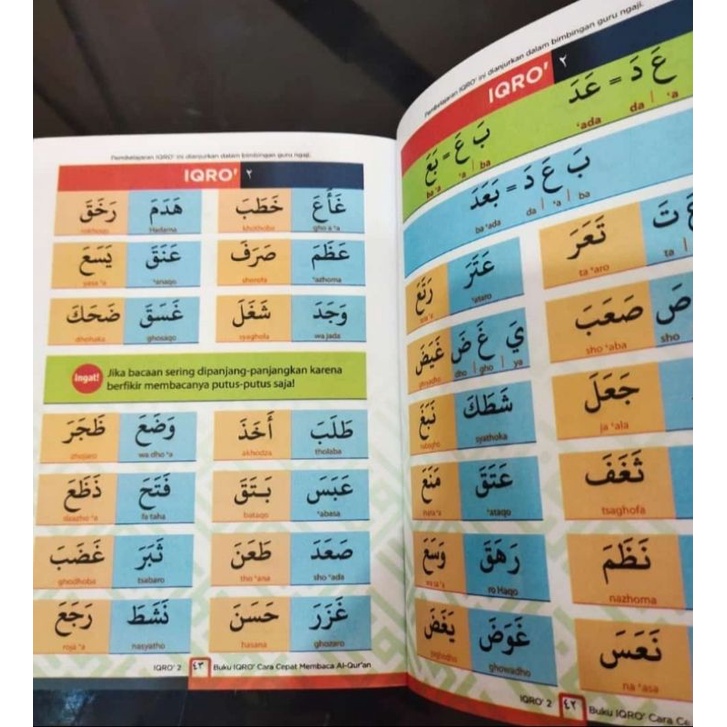 Pembelajaran IQRO' ini dianjurkan dalam bimbingan guru ngaji.
IQRO' ٢
غَأَعَ خَطَبَ هَدَمَ رَخَقَ
gho a 'a khothoba Hadama rokhoqo
عَظَمَ صَرَفَ عَنَقَ يَسَعَ
'azhoma shorofa 'anaqo yasa 'a
وَجَدَ شَغَلَ غَسَقَ ضَحَكَ
wa jada syaghola ghosaqo dhohaka
Ingat! Jika bacaan sering dipanjang-panjangkan karena
berfikir membacanya putus-putus saja!
طَلَبَ أَخَذَ وَضَعَ ظَجَرَ
tholaba akhodza wa dho 'a zhojaro
عَبَسَ بَتَقَ فَتَحَ ذَظَعَ
'abasa bataqo fa taha dzazho 'a
صَعَدَ طَعَنَ ثَبَرَ غَضَبَ
sho 'ada tho 'ana tsabaro ghodhoba
غَزَرَ حَسَنَ نَشَطَ رَجَعَ
ghozaro hasana nasyatho roja 'a
IQRO' 2 ٤٣ Buku IQRO' Cara Cepat Membaca Al-Qur'an
Pembelajaran IQRO' ini dianjurkan dalam bimbingan guru ngaji.
IQRO' ٢
عَ دَ = عَدَ
'ada da | 'a
بَ عَ = بَعَ
ba 'a 'a | ba
بَ عَ دَ = بَعَدَ
ba 'ada da | 'a | ba
تَ تَعَرَ عَتَرَ رَتَعَ
ta ta 'aro 'ataro
صَ صَعَبَ يَ غَ ضَ غَيَضَ
sho sho 'aba dho | gho | ya
جَعَلَ شَطَكَ نَبَغَ
ja 'ala syathoka
ثَغَفَ عَتَقَ مَنَعَ
tsaghofa 'ataqo
نَظَمَ رَهَقَ وَسَعَ
nazhoma ro Haqo
نَعَسَ غَوَضَ يَغَضَ
na 'asa ghowadho
IQRO' 2 ٤٢ Buku IQRO' Cara